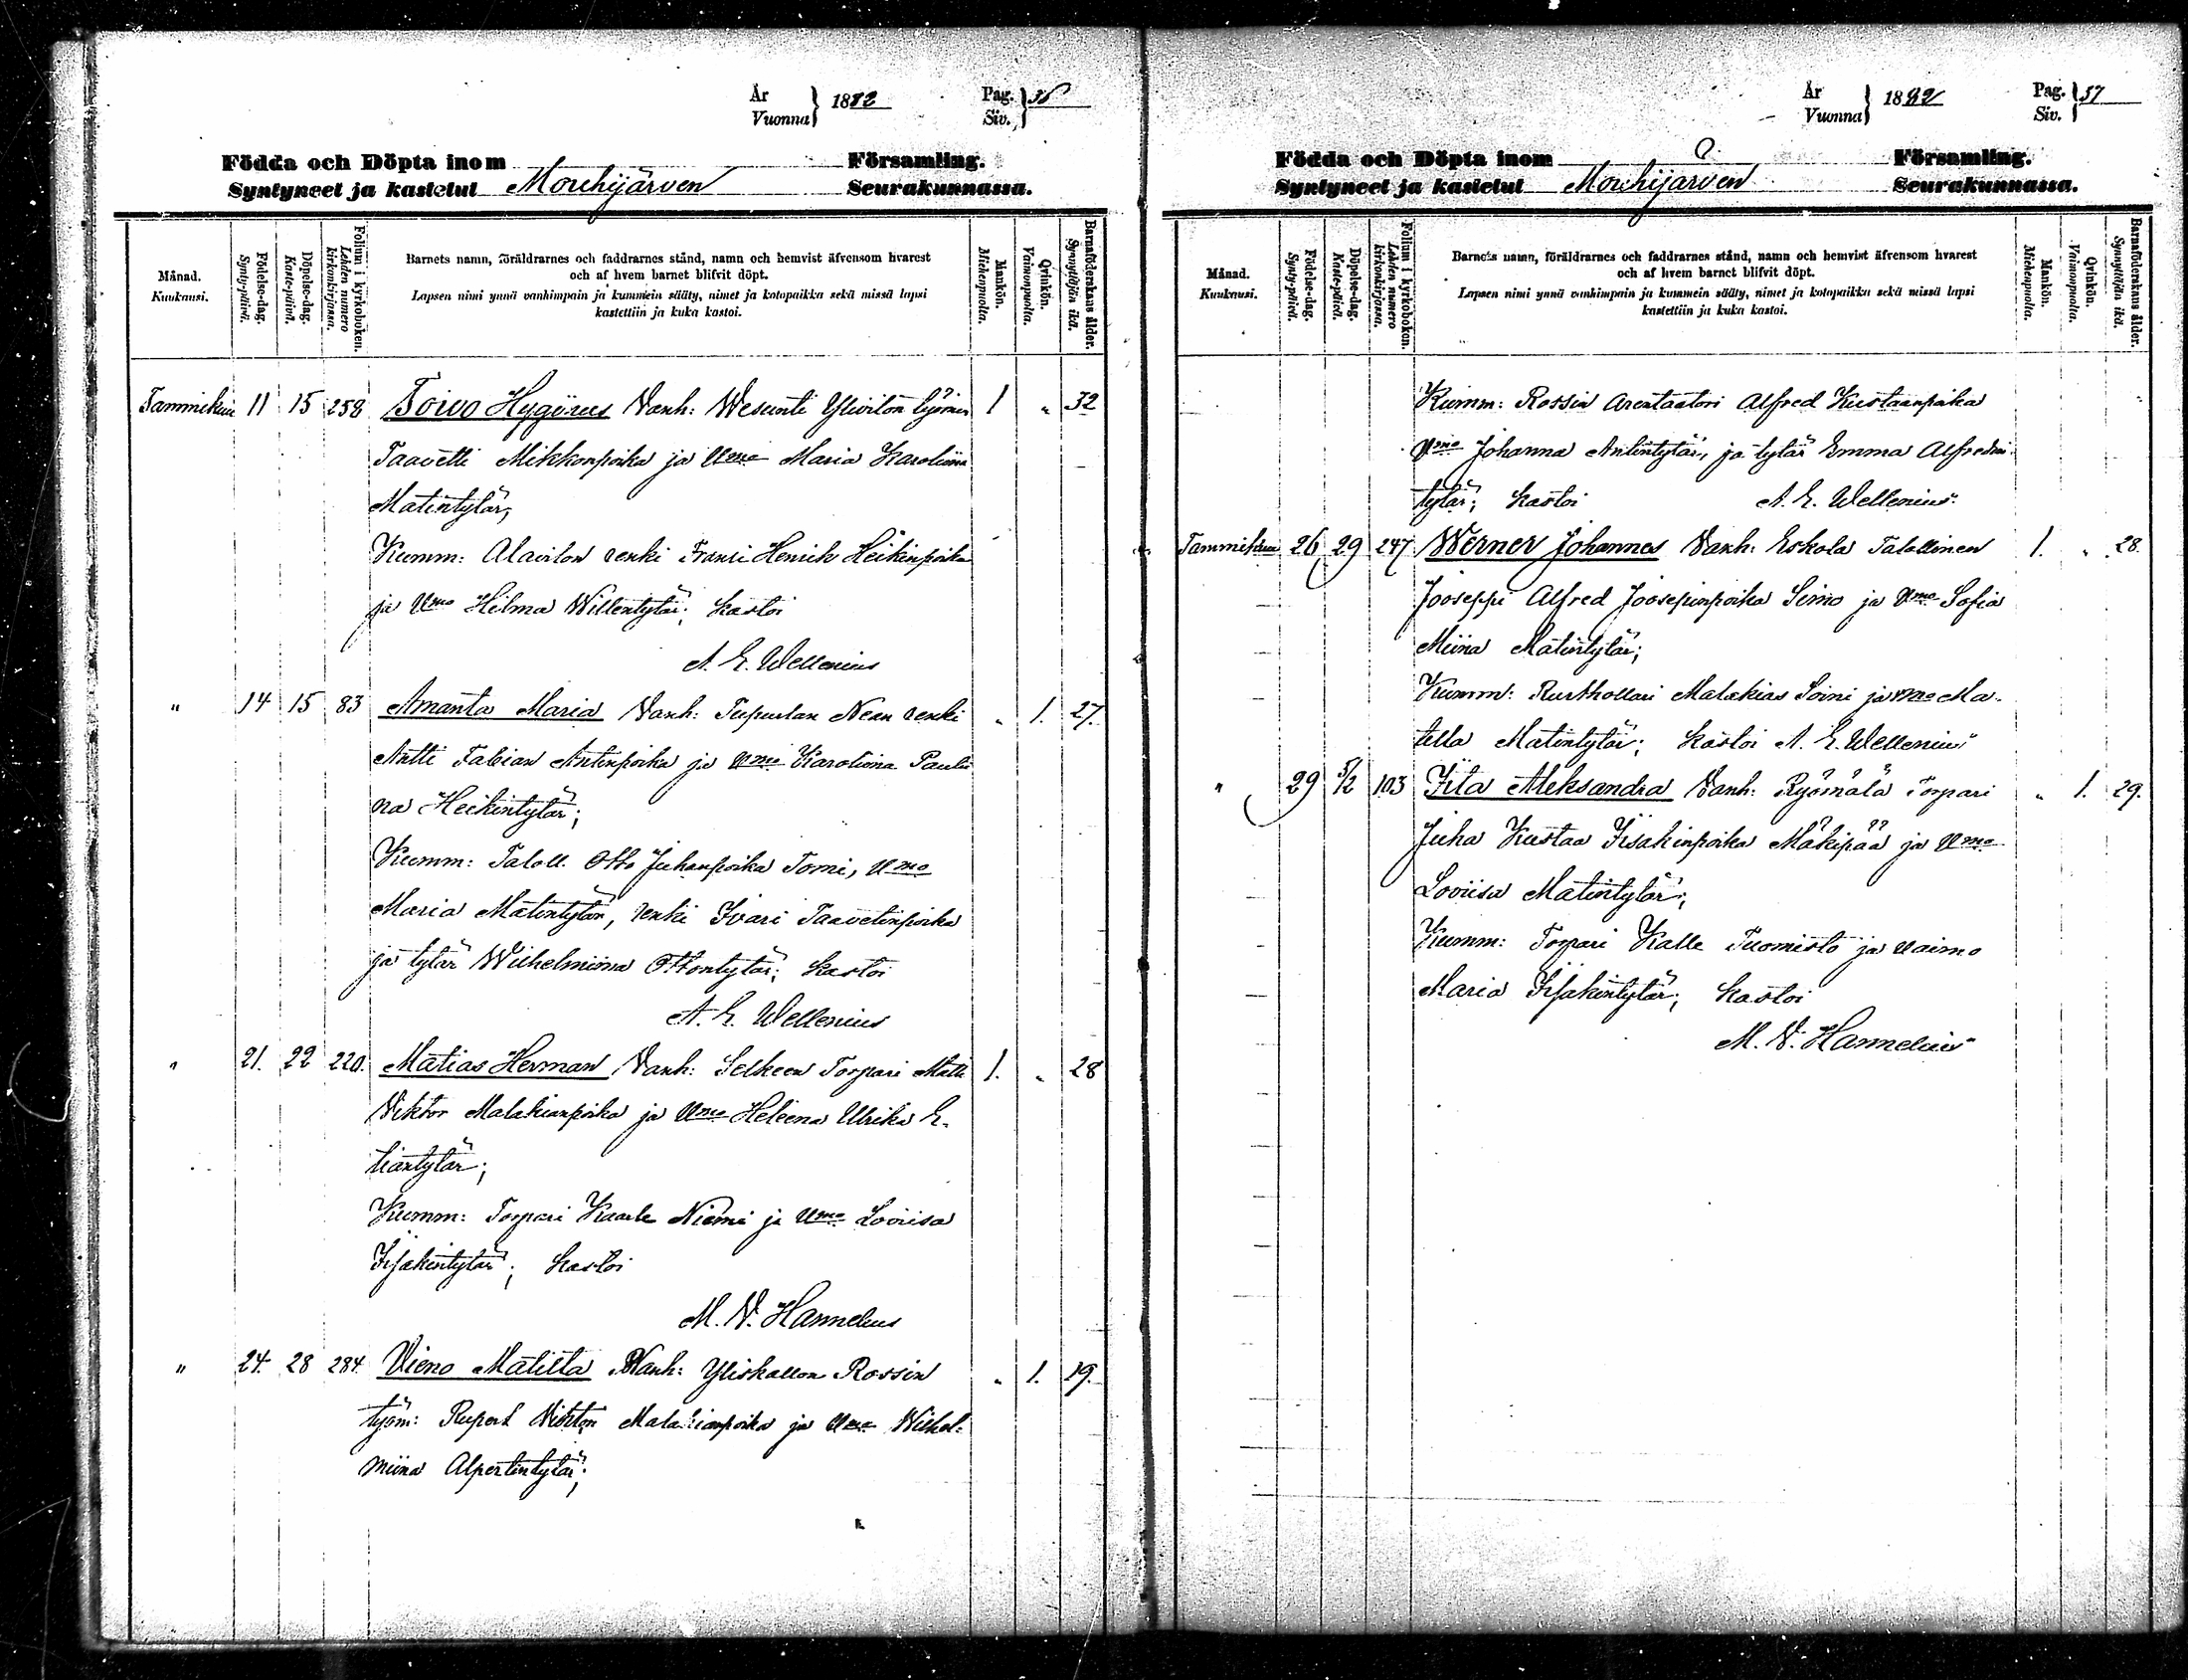 År
Vuonna } 1882 Pag.
Siv. }
Födda och Döpta inom Församling.
Syntyneet ja kastetut Mouhijärven Seurakunnassa.
Månad.
Kuukausi.
Födelse-dag.
Synty-päivä.
Döpelse-dag.
Kaste-päivä.
Folium i kyrkoboken.
Lehden numero kirkonkirjassa.
Barnets namn, föräldrarnes och faddrarnes stånd, namn och hemvist äfvensom hvarest
och af hvem barnet blifvit döpt.
Lapsen nimi ynnä vanhimpain ja kummein sääty, nimet ja kotopaikka sekä missä lapsi
kastettiin ja kuka kastoi.
Mankön.
Miehenpuolta.
Qvinkön.
Vaimonpuolta.
Barnaföderskans ålder.
Synnyttäjän ikä.
Tammikuu 11 15 258 Toivo Hyginus Vanh: Wesunti Yliviton työmies 1 „ 32
Taavetti Mikkonpoika ja Vmo Maria Karoliina
Matintytär;
Kumm: Alaviton renki Fransi Henrik Heikinpoika
ja Vmo Hilma Willentytär; kastoi
A. E. Wellenius
„ 14 15 83 Amanta Maria Vanh: Tupurlan Nean renki „ 1. 27.
Antti Fabian Antinpoika ja Vmo Karoliina Pauli
na Heikintytär;
Kumm: Taloll. Otto Juhanpoika Tomi, Vmo
Maria Matintytär, renki Ivari Taavetinpoika
ja tytär Wilhelmiina Ottontytär; kastoi
A. E. Wellenius
„ 21. 22 220. Matias Herman Vanh: Selkeen Torpari Matti 1. „ 28
Viktor Malakianpoika ja Vmo Heleena Ulrika E-
liantytär;
Kumm: Torpari Kaarle Niemi ja Vmo Loviisa
Iisakintytär; kastoi
M. V. Hannelius
„ 24. 28 284. Vieno Matilta Vanh: Yliskallon Rossin „ 1. 19.
työm: Rupert Viktor Malakianpoika ja Vmo Wilhel-
miina Alpertintytär;
År
Vuonna } 1882 Pag.
Siv. } 57
Födda och Döpta inom Församling.
Syntyneet ja kastetut Mouhijärven Seurakunnassa.
Månad.
Kuukausi.
Födelse-dag.
Synty-päivä.
Döpelse-dag.
Kaste-päivä.
Folium i kyrkoboken.
Lehden numero kirkonkirjassa.
Barnets namn, föräldrarnes och faddrarnes stånd, namn och hemvist äfvensom hvarest
och af hvem barnet blifvit döpt.
Lapsen nimi ynnä vanhimpain ja kummein sääty, nimet ja kotopaikka sekä missä lapsi
kastettiin ja kuka kastoi.
Mankön.
Miehenpuolta.
Qvinkön.
Vaimonpuolta.
Barnaföderskans ålder.
Synnyttäjän ikä.
Kumm: Rossin Arentaatori Alfred Kustaanpoika
Vmo Johanna Antintytär, ja tytär Emma Alfredin
tytär; kastoi A. E. Wellenius
Tammikuu 26 29 247 Werner Johannes Vanh: Eskola Talollinen 1. „ 28.
Jooseppi Alfred Joosepinpoika Simo ja Vmo Sofia
Miina Matintytär;
Kumm: Rusthollari Malakias Soini ja Vmo Ma-
tilta Matintytär; kastoi A. E. Wellenius
„ 29 5/2 103 Iita Aleksandra Vanh: Ryömälä Torpari „ 1. 29.
Juha Kustaa Iisakinpoika Mäkipää ja Vmo
Loviisa Matintytär;
Kumm: Torpari Kalle Tuomisto ja vaimo
Maria Iisakintytär; kastoi
M. V. Hannelius